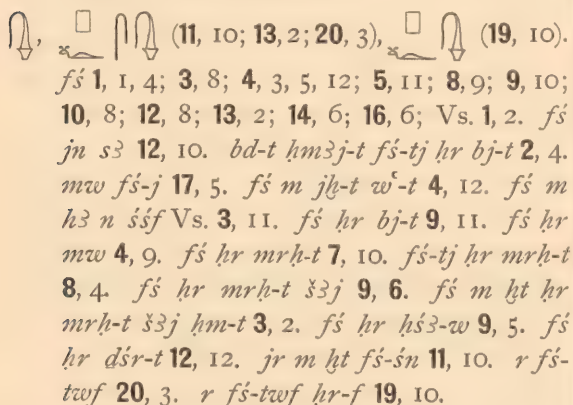 , (11, 10; 13, 2; 20, 3), (19, 10).
fś 1, 1, 4; 3, 8; 4, 3, 5, 12; 5, 11; 8, 9; 9, 10;
10, 8; 12, 8; 13, 2; 14, 6; 16, 6; Vs. 1, 2. fś
jn sꜣ 12, 10. bd-t ḥmꜣj-t fś-tj ḥr bj-t 2, 4.
mw fś-j 17, 5. fś m jḫ-t wʿ-t 4, 12. fś m
hꜣ n śśf Vs. 3, 11. fś ḥr bj-t 9, 11. fś ḥr
mw 4, 9. fś ḥr mrḥ-t 7, 10. fś-tj ḥr mrḥ-t
8, 4. fś ḥr mrḥ-t šꜣj 9, 6. fś m ḫt ḥr
mrḥ-t šꜣj ḥm-t 3, 2. fś ḥr ḥśꜣ-w 9, 5. fś
ḥr dśr-t 12, 12. jr m ḫt fś-śn 11, 10. r fś-
twf 20, 3. r fś-twf ḥr-f 19, 10.